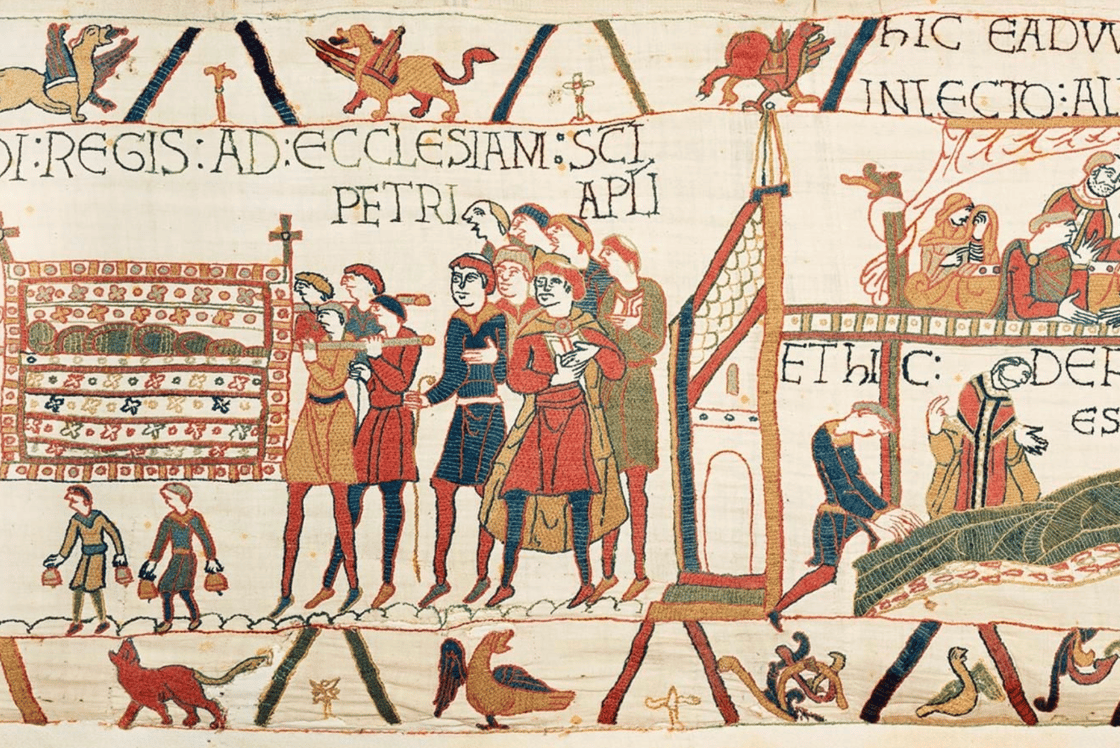 DI:REGIS:AD:ECCLESIAM:SCI
PETRI APLI
hIC EADVV
INLECTO:AL
EThIC: DEF
ES